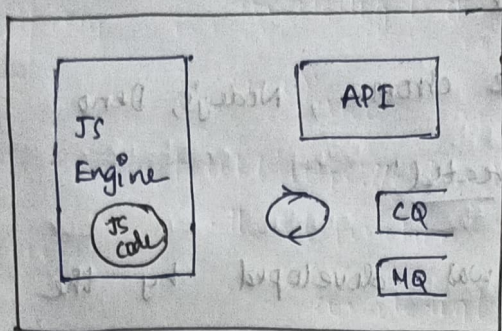 JS
Engine
JS
code
API
CQ
MQ